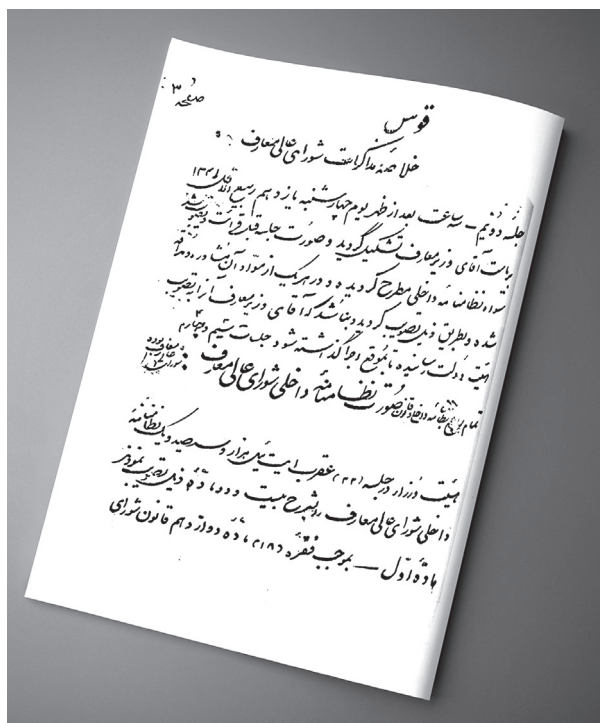 صفحه ۳
قوس
خلاصه مذاکرات شورای عالی معارف
جلسه دونیم — سه ساعت بعد از ظهر یوم چهارشنبه یازدهم ربیع الاول ۱۳۴۱
بریاست آقای وزیر معارف تشکیل گردید و صورت جلسه قبل قرائت و تصویب شد
مواد نظامنامه داخلی مطرح گردیده و در هر یک از مواد آن مشاوره و مذاکره
شده و بطریق ذیل تصویب گردید و بنا شد که آقای وزیر معارف آنرا بتصویب
هیئت دولت رسانیده تا بموقع اجرا گذاشته شود جلسات بیستم و چهارم
تمام نظامنامه داخلی
صورت نظامنامه داخلی شورای عالی معارف
هیئت وزراء در جلسه عقرب ایت ئیل هزار و سیصد و یک نظامنامه
داخلی شورای عالی معارف را بشرح بیست و دو ماده ذیل تصویب نمودند
مادهٔ اول — بموجب فقره ۱۸ ماده دوازدهم قانون شورای